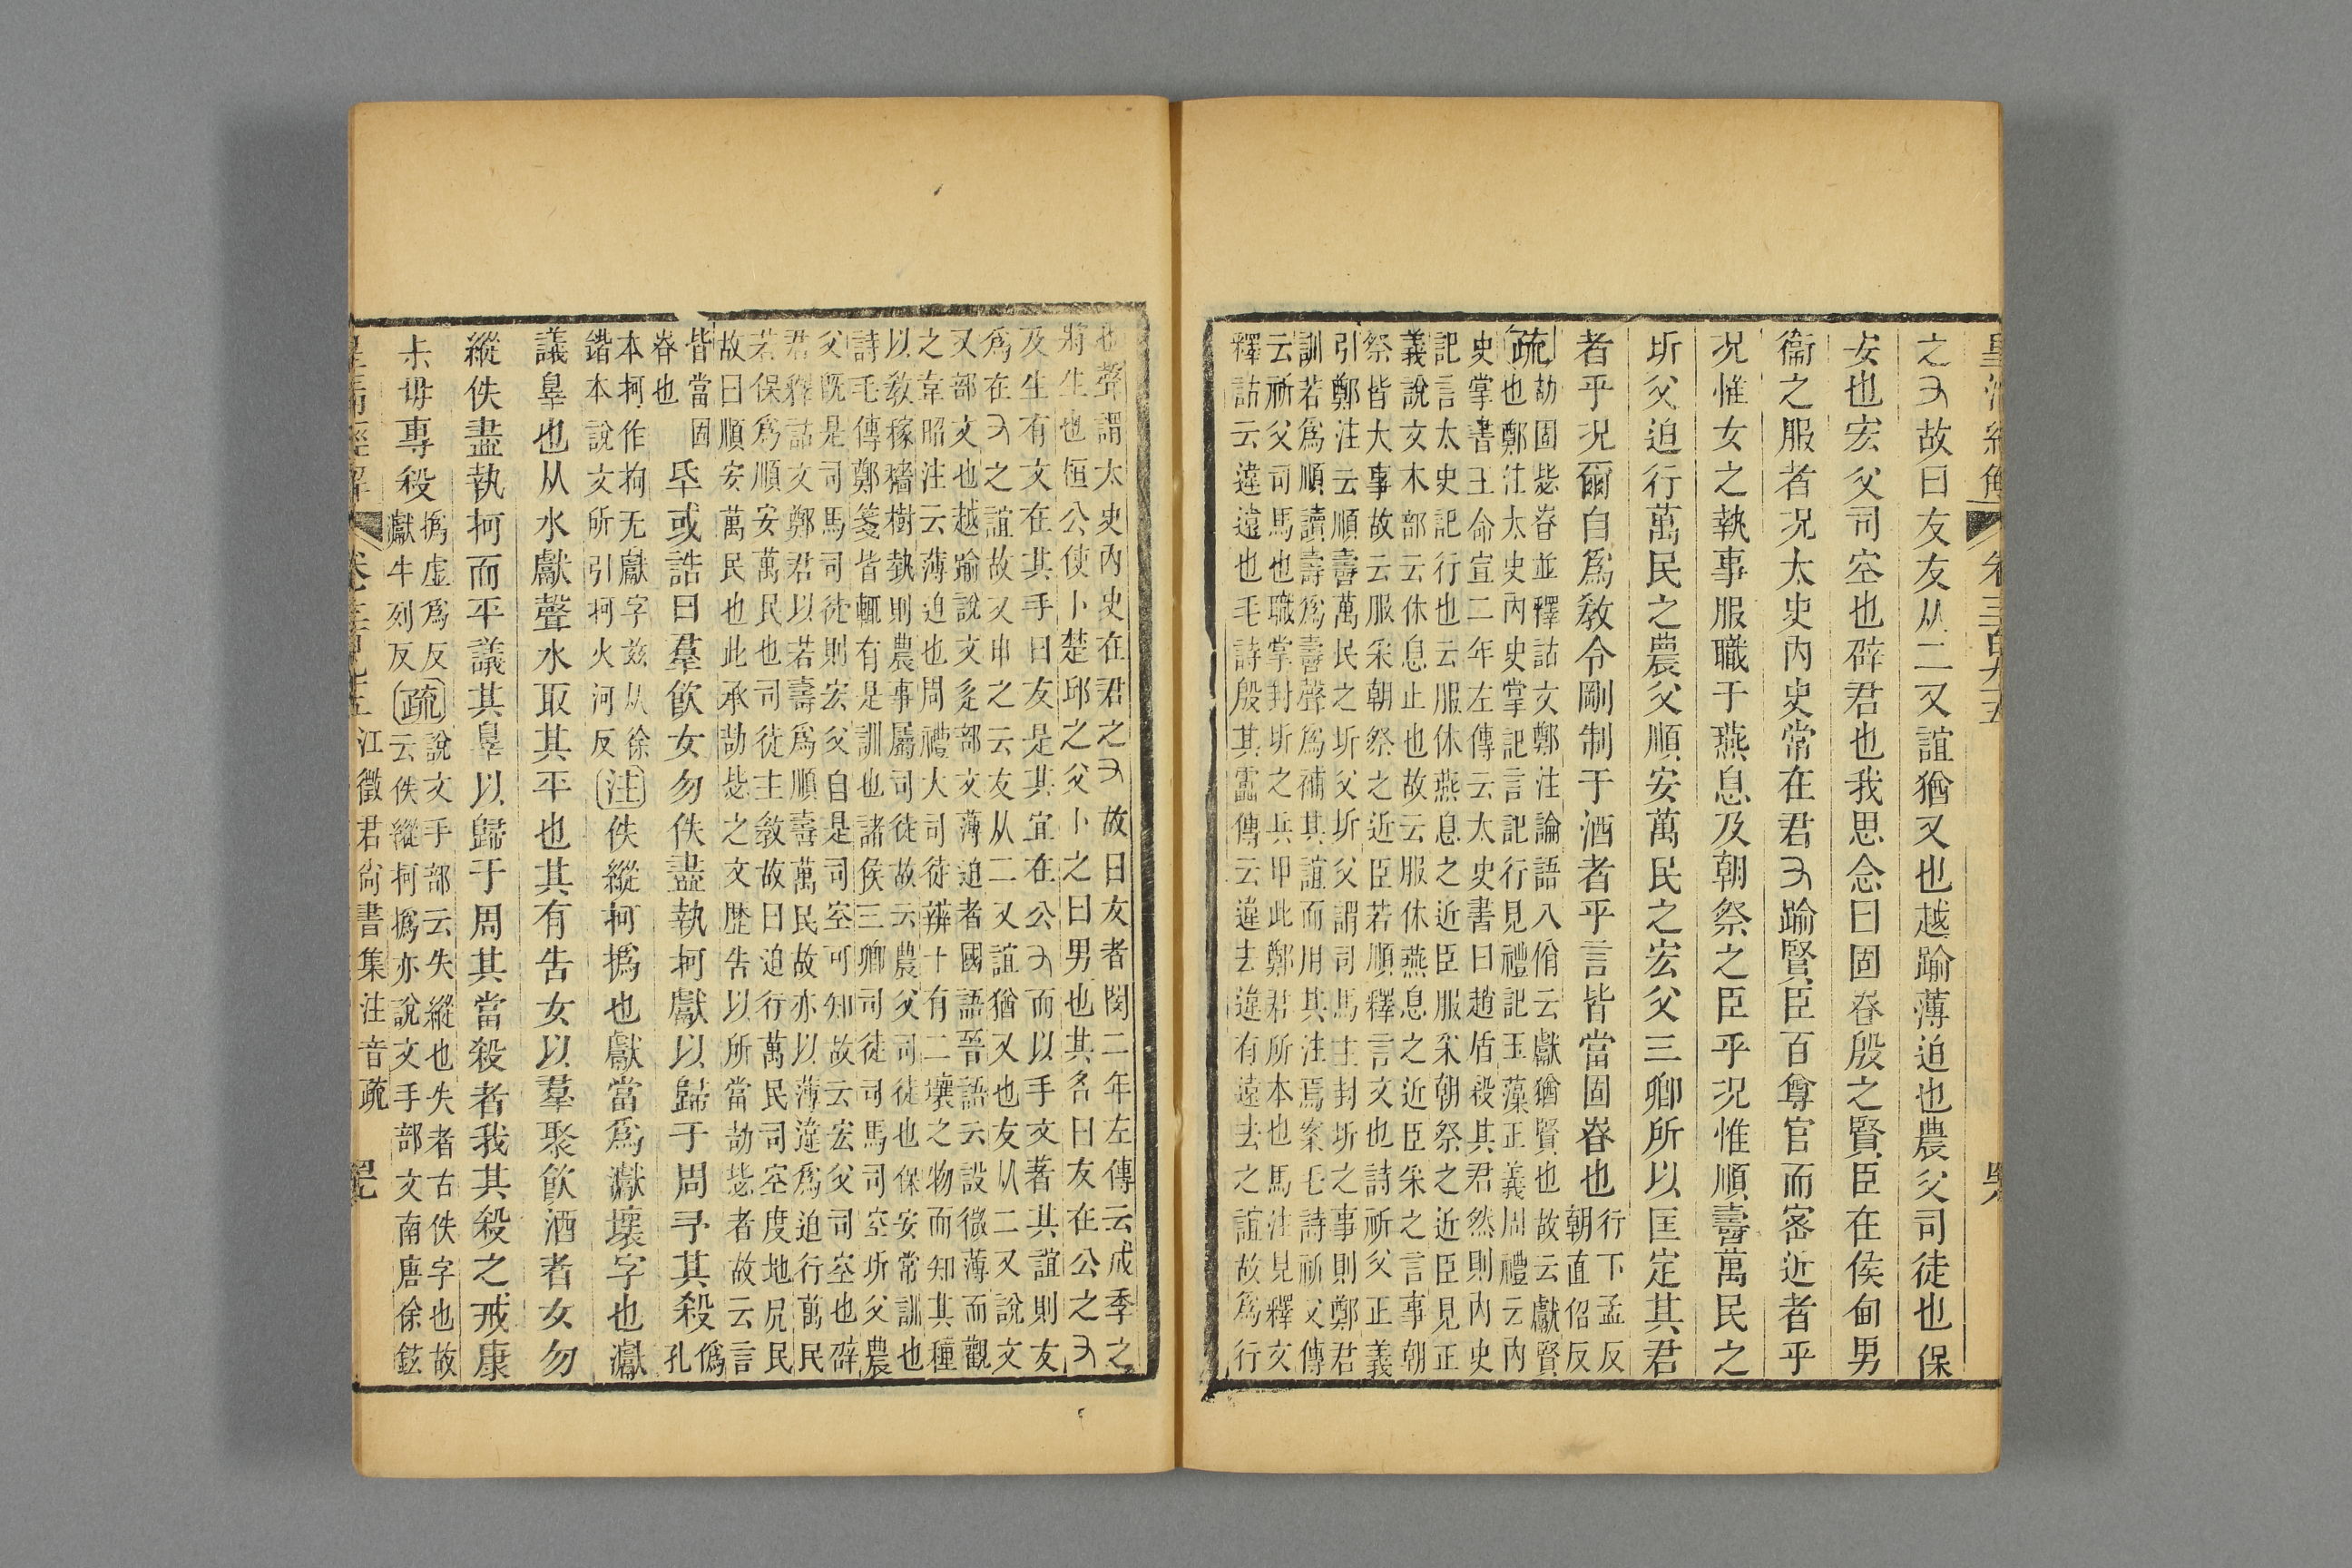 之𠂇故曰友友从二又誼猶又也越踰薄迫也農父司徒也保
安也宏父司空也辟君也我思念曰固眘殷之賢臣在侯甸男
衞之服者况太史內史常在君𠂇踰賢臣百尊官而宻近者乎
况惟女之執事服職于燕息及朝祭之臣乎况惟順壽萬民之
圻父迫行萬民之農父順安萬民之宏父三卿所以匡定其君
者乎况爾自爲敎令剛制于酒者乎言皆當固眘也
行下孟反
朝直佋反
疏
劼固毖眘並釋詁文鄭注論語八佾云獻猶賢也故云獻賢
也鄭注太史內史掌記言記行見禮記玉藻正義周禮云內
史掌書王命宣二年左傳云太史書曰趙盾殺其君然則內史
記言太史記行也云服休燕息之近臣服采朝祭之近臣見正
義說文木部云休息止也故云服休燕息之近臣采之言事朝
祭皆大事故云服采朝祭之近臣若順釋言文也詩祈父正義
引鄭注云順壽萬民之圻父圻父謂司馬主封圻之事則鄭君
訓若爲順讀壽爲壽聲爲補其誼而用其注焉案毛詩祈父傳
云祈父司馬也職掌封圻之兵甲此鄭君所本也馬注見釋文
釋詁云違遠也毛詩殷其靁傳云違去違有遠去之誼故爲行
也聲謂太史內史在君之𠂇故曰友者閔二年左傳云成季之
將生也恒公使卜楚邱之父卜之曰男也其名曰友在公之𠂇
及生有文在其手曰友是其宜在公𠂇而以手文著其誼則友
爲在𠂇之誼故又申之云友从二又誼猶又也友从二又說文
又部文也越踰說文辵部文薄迫者國語晉語云設微薄而觀
之韋昭注云薄迫也周禮大司徒辨十有二壤之物而知其種
以敎稼穡樹埶則農事屬司徒故云農父司徒也保安常訓也
詩毛傳鄭箋皆輒有是訓也諸侯三卿司徒司馬司空圻父農
父旣是司馬司徒則宏父自是司空可知故云宏父司空也辟
君釋詁文鄭君以若壽爲順壽萬民故亦以薄違爲迫行萬民
若保爲順安萬民也司徒主敎故曰迫行萬民司空度地凥民
故曰順安萬民也此承劼毖之文歷告以所當劼毖者故云言
皆當固
眘也
氒或誥曰羣飮女勿佚盡執柯獻以歸于周予其殺
僞孔
本柯作拘无獻字兹从徐
鍇本說文所引柯火河反
注佚縱柯撝也獻當爲瀗壞字也瀗
議辠也从水獻聲水取其平也其有告女以羣聚飮酒者女勿
縱佚盡執柯而平議其辠以歸于周其當殺者我其殺之戒康
叔毋專殺
撝虛爲反
獻牛列反
疏
說文手部云失縱也失者古佚字也故
云佚縱柯撝亦說文手部文南唐徐鉉
江徵君尙書集注音疏